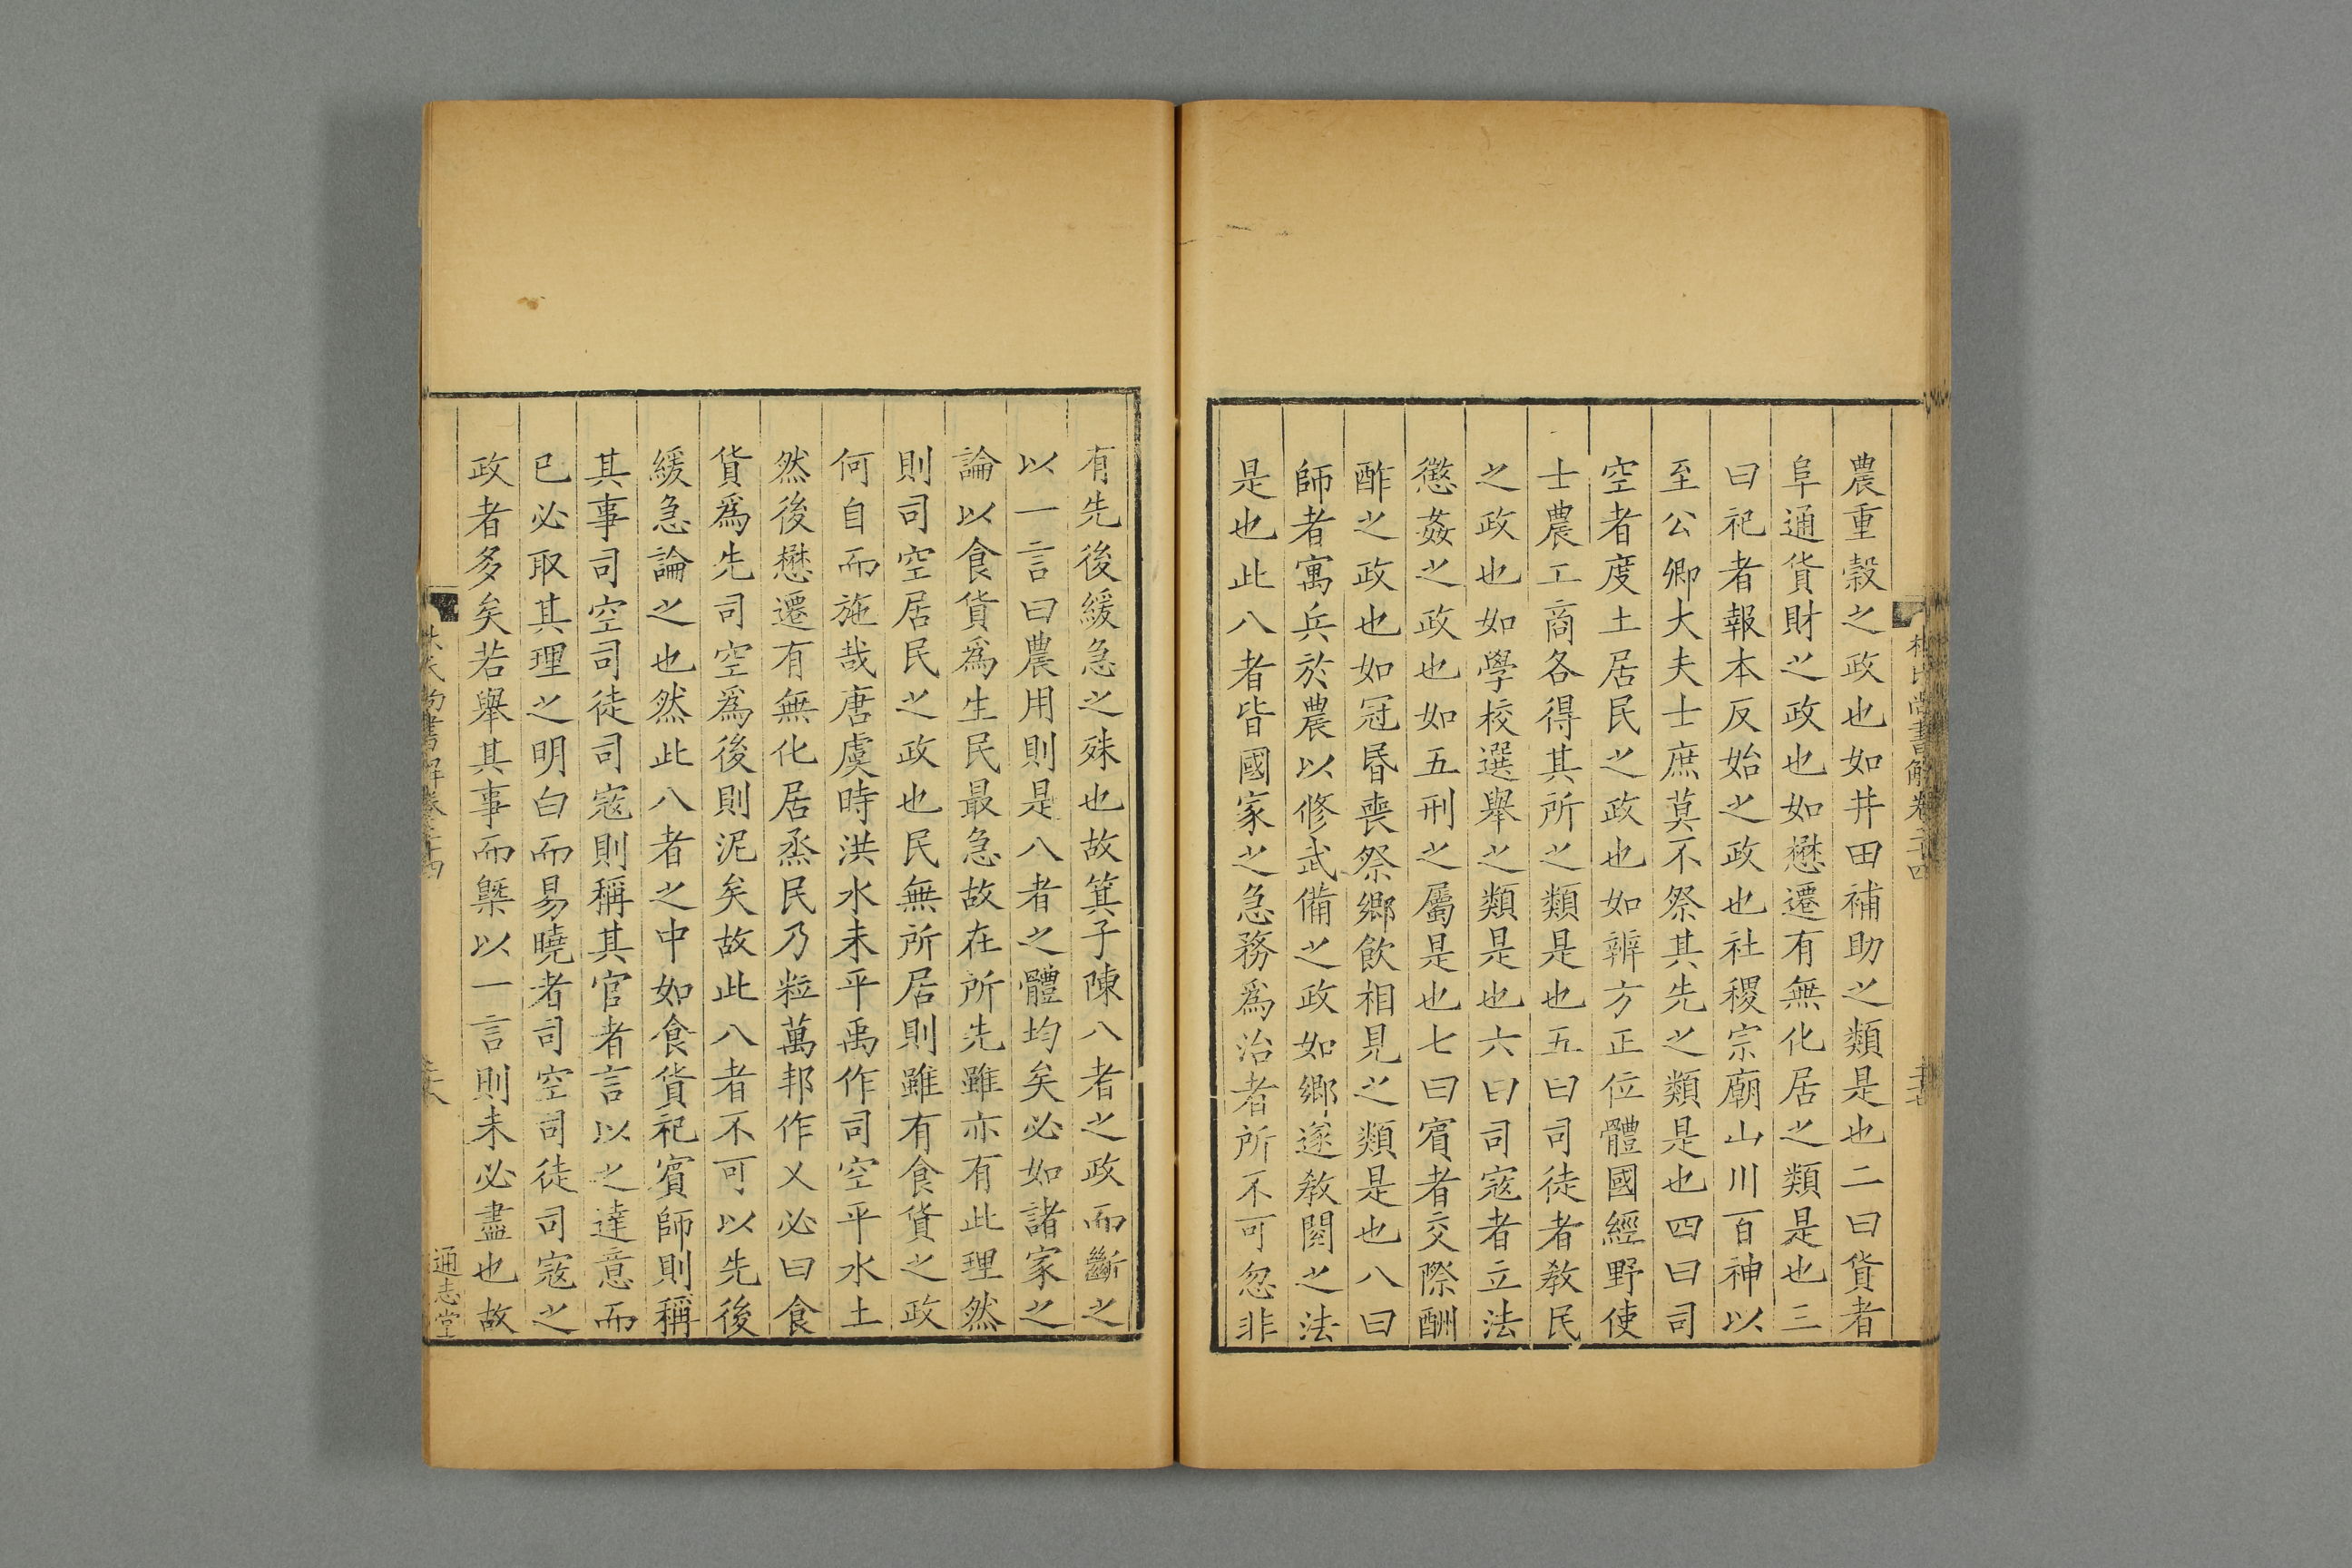 農重榖之政也如井田補助之類是也二曰貨者
阜通貨財之政也如懋遷有無化居之類是也三
曰祀者報本反始之政也社稷宗廟山川百神以
至公卿大夫士庶莫不祭其先之類是也四曰司
空者度土居民之政也如辨方正位體國經野使
士農工商各得其所之類是也五曰司徒者敎民
之政也如學校選舉之類是也六曰司寇者立法
懲姦之政也如五刑之屬是也七曰賓者交際酬
酢之政也如冠昬喪祭鄉飲相見之類是也八曰
師者寓兵於農以修武備之政如鄉遂敎閱之法
是也此八者皆國家之急務爲治者所不可忽非
有先後緩急之殊也故箕子陳八者之政而斷之
以一言曰農用則是八者之體均矣必如諸家之
論以食貨爲生民最急故在所先雖亦有此理然
則司空居民之政也民無所居則雖有食貨之政
何自而施哉唐虞時洪水未平禹作司空平水土
然後懋遷有無化居烝民乃粒萬邦作乂必曰食
貨爲先司空爲後則泥矣故此八者不可以先後
緩急論之也然此八者之中如食貨祀賓師則稱
其事司空司徒司寇則稱其官者言以之達意而
已必取其理之明白而易曉者司空司徒司寇之
政者多矣若舉其事而槩以一言則未必盡也故
通志堂